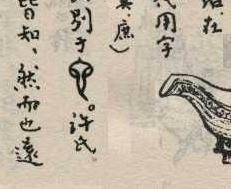 在
代用字
庶）
別于。許氏
皆知、然而也遠